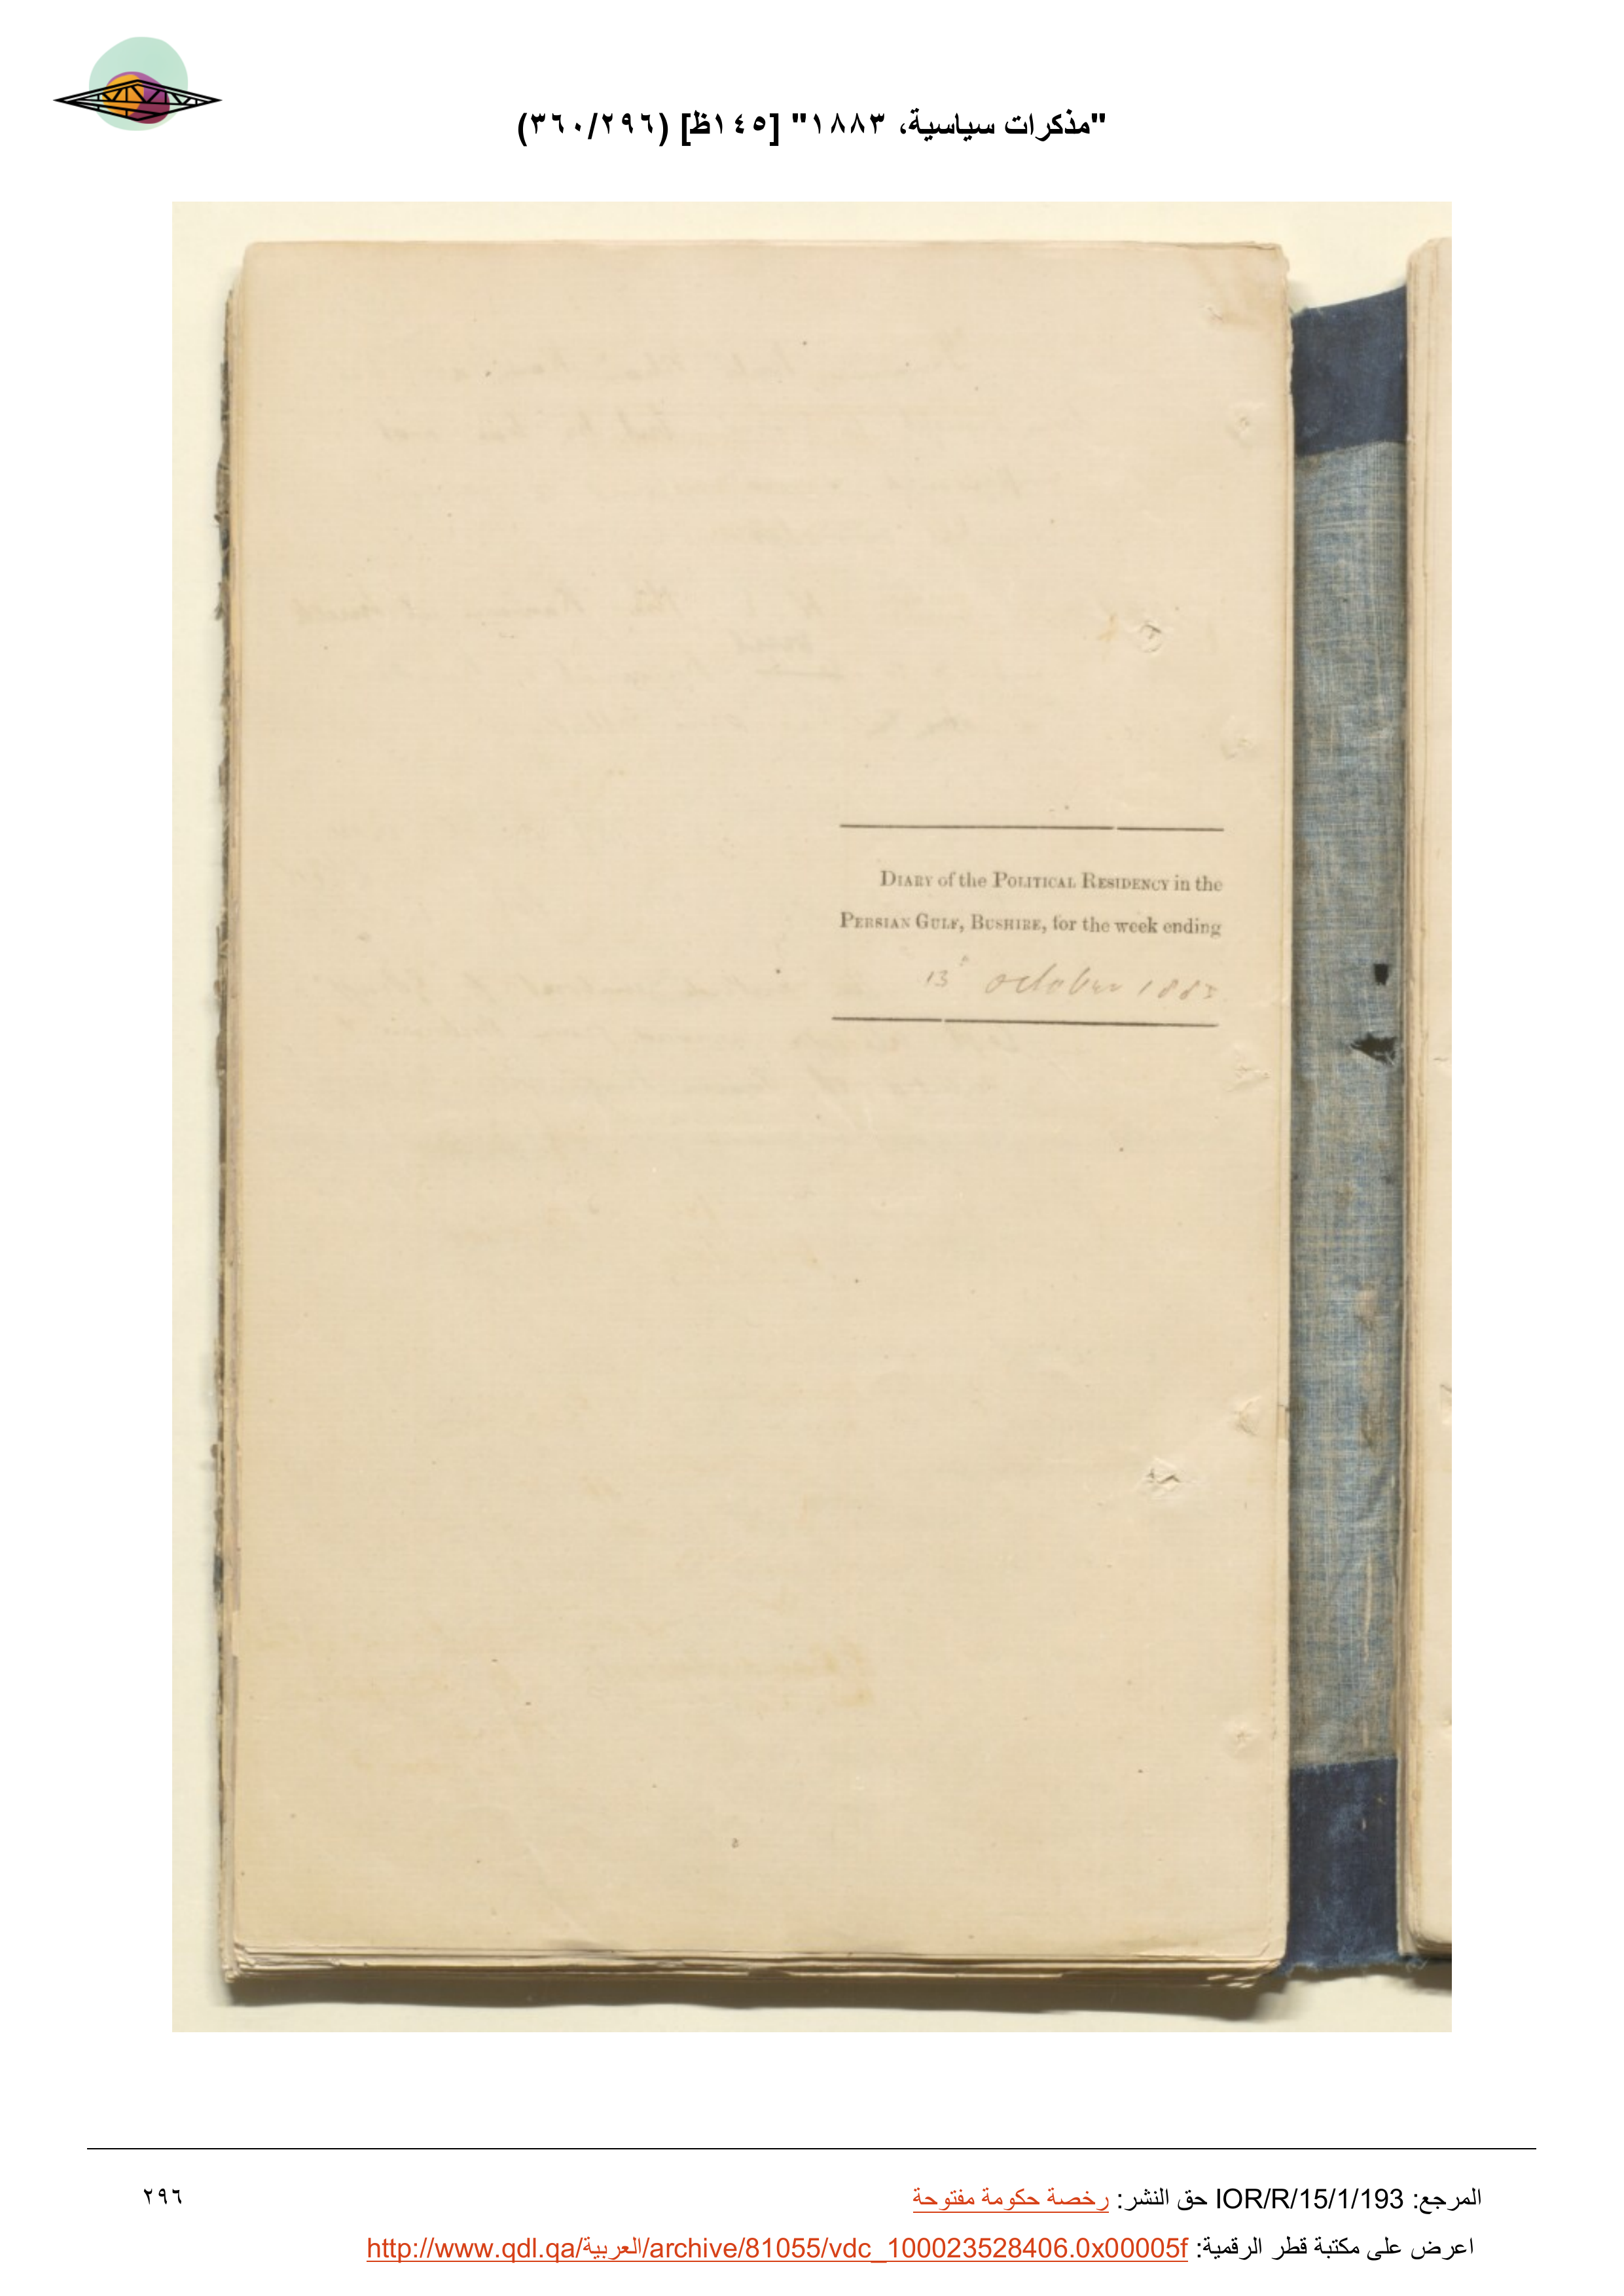 "مذكرات سياسية، ١٨٨٣" [١٤٥ظ] (٣٦٠/٢٩٦)
DIARY of the POLITICAL RESIDENCY in the
PERSIAN GULF, BUSHIRE, for the week ending
13th October 1883
المرجع: IOR/R/15/1/193 حق النشر: رخصة حكومة مفتوحة
٢٩٦
اعرض على مكتبة قطر الرقمية: http://www.qdl.qa/العربية/archive/81055/vdc_100023528406.0x00005f